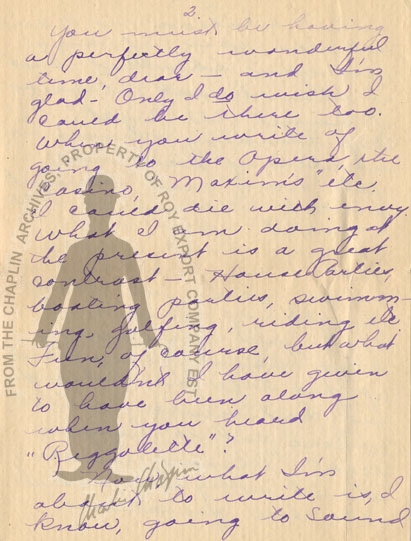 2
You must be having
a perfectly wonderful
time, dear — and I'm
glad — Only I do wish I
could be there too.
When you write of
going to the Opera, the
Casino, "Maxim's" etc.
I could die with envy.
What I am doing at
the present is a great
contrast — House Parties,
boating parties, swimm-
ing, golfing, riding etc
Fun, of course, but what
wouldn't I have given
to have been along
when you heard
"Riggolette"?
Now what I'm
about to write is, I
know, going to sound
FROM THE CHAPLIN ARCHIVES. PROPERTY OF ROY EXPORT COMPANY EST
Charlie Chaplin